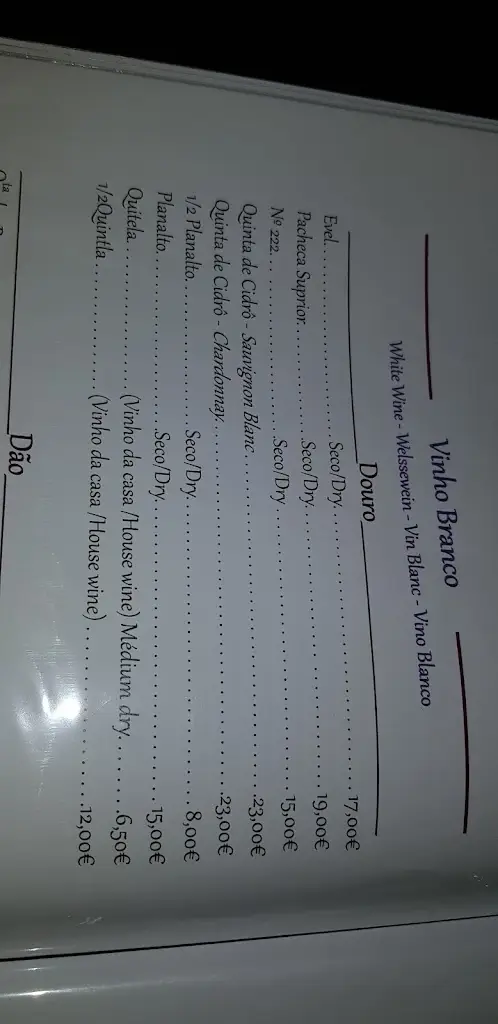 Vinho Branco
White Wine - Welssewein - Vin Blanc - Vino Blanco
Douro
Evel. . . . . . . . . . . . . . . . . . . . Seco/Dry. . . . . . . . . . . . . . . . . . . . . . . . . . . . 17,00€
Pacheca Suprior. . . . . . . . . . . . Seco/Dry. . . . . . . . . . . . . . . . . . . . . . . . . . . . 19,00€
Nº 222. . . . . . . . . . . . . . . . . . . Seco/Dry. . . . . . . . . . . . . . . . . . . . . . . . . . . . 15,00€
Quinta de Cidrô - Sauvignon Blanc . . . . . . . . . . . . . . . . . . . . . . . . . . . . . . . . 23,00€
Quinta de Cidrô - Chardonnay. . . . . . . . . . . . . . . . . . . . . . . . . . . . . . . . . . . . 23,00€
1/2 Planalto. . . . . . . . . . . . . . . Seco/Dry. . . . . . . . . . . . . . . . . . . . . . . . . . . . 8,00€
Planalto. . . . . . . . . . . . . . . . . . Seco/Dry. . . . . . . . . . . . . . . . . . . . . . . . . . . . 15,00€
Quitela. . . . . . . . . . . . . . . (Vinho da casa /House wine) Médium dry. . . . . . . 6,50€
1/2Quintla . . . . . . . . . . . . . . (Vinho da casa /House wine) . . . . . . . . . . . . . . . 12,00€
Dão